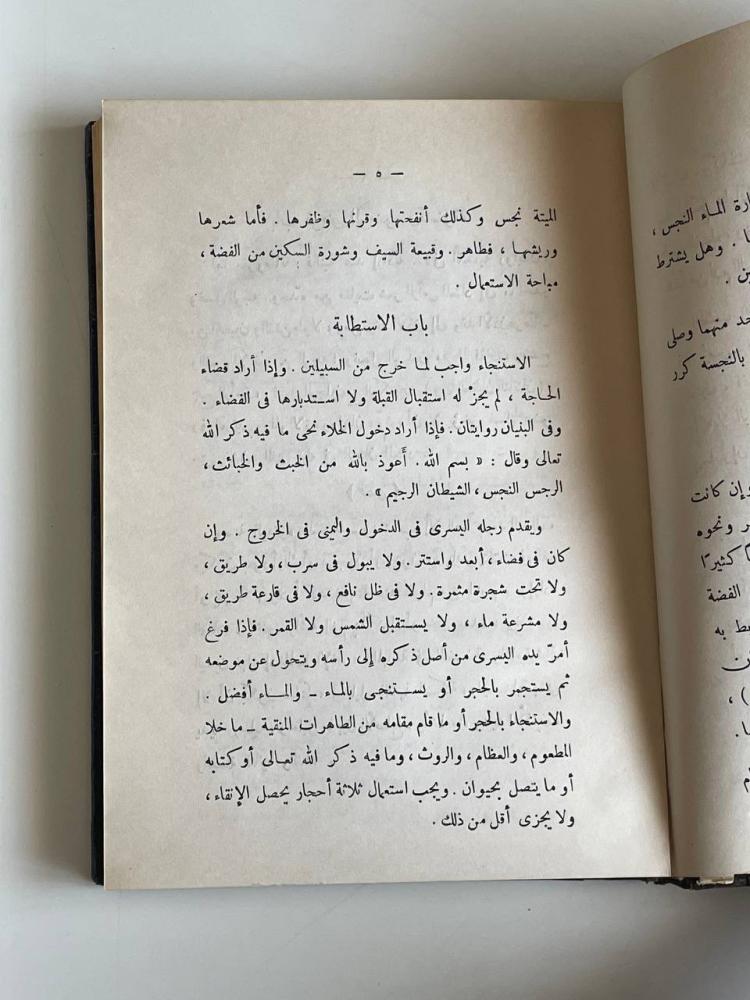 — ٥ —
الميتة نجس وكذلك أنفحتها وقرنها وظفرها . فأما شعرها
وريشها ، فطاهر . وقبيعة السيف وشورة السكين من الفضة ،
مباحة الاستعمال .
باب الاستطابة
الاستنجاء واجب لما خرج من السبيلين . وإذا أراد قضاء
الحاجة ، لم يجزْ له استقبال القبلة ولا استدبارها فى الفضاء .
وفى البنيان روايتان . فإذا أراد دخول الخلاء نحى ما فيه ذكر الله
تعالى وقال : « بسم الله . أَعوذ بالله من الخبث والخبائث ،
الرجس النجس ، الشيطان الرجيم » .
ويقدم رجله اليسرى فى الدخول واليمنى فى الخروج . وإن
كان فى فضاء ، أبعد واستتر . ولا يبول فى سرب ، ولا طريق ،
ولا تحت شجرة مثمرة . ولا فى ظل نافع ، ولا فى قارعة طريق ،
ولا مشرعة ماء ، ولا يستقبل الشمس ولا القمر . فإذا فرغ
أمرّ يده اليسرى من أصل ذكره إلى رأسه ويتحول عن موضعه
ثم يستجمر بالحجر أو يستنجى بالماء ــ والماء أفضل .
والاستنجاء بالحجر أو ما قام مقامه من الطاهرات المنقية ــ ما خلا
المطعوم ، والعظام ، والروث ، وما فيه ذكر الله تعالى أو كتابه
أو ما يتصل بحيوان . ويجب استعمال ثلاثة أحجار يحصل الإنقاء ،
ولا يجزى أقل من ذلك .
رة الماء النجس ،
ا . وهل يشترط
ين .
حد منهما وصلى
بالنجسة كرر
وإن كانت
ر ونحوه
كثيرًا
الفضة
به